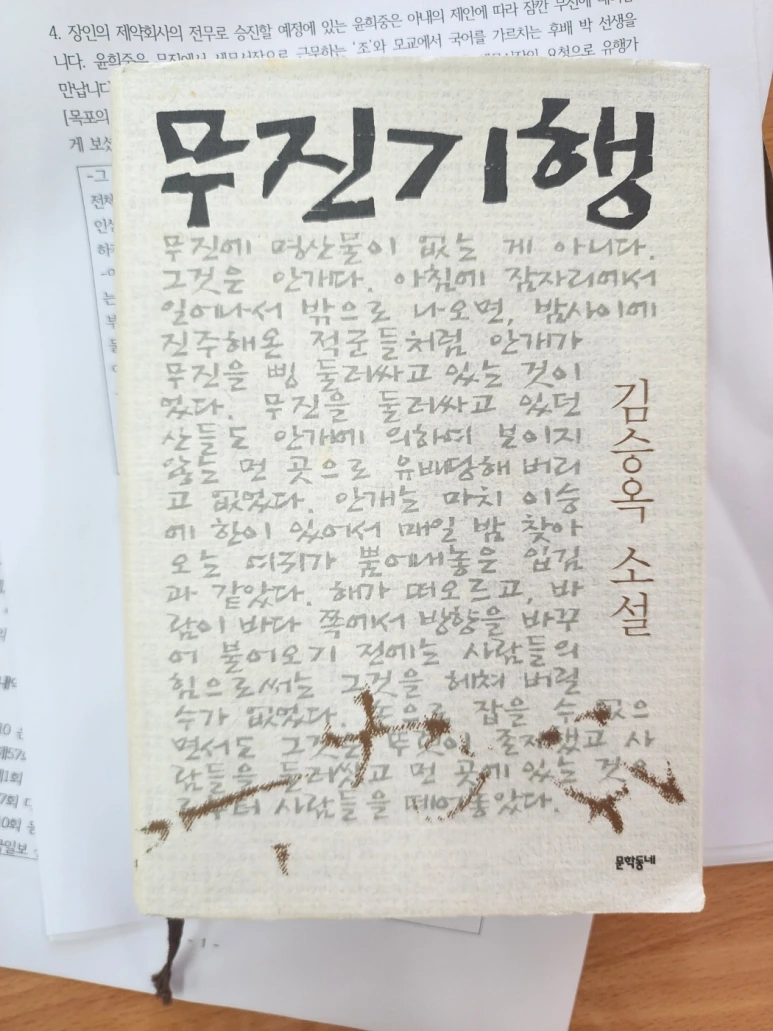 4. 장인의 제약회사의 전무로 승진할 예정에 있는 윤희중은 아내의 제안에 따라 잠깐 무진에
니다. 윤희중은 무진에서 세무서장으로 근무하는 '조'와 모교에서 국어를 가르치는 후배 박 선생을
만납니다
[목포의
게 보셨
-그
전체
무진기행
무진에 명산물이 없는 게 아니다.
그것은 안개다. 아침에 잠자리에서
일어나서 밖으로 나오면, 밤사이에
진주해온 적군들처럼 안개가
무진을 삥 둘러싸고 있는 것이
었다. 무진을 둘러싸고 있던
산들도 안개에 의하여 보이지
않는 먼 곳으로 유배당해 버리
고 없었다. 안개는 마치 이승
에 한이 있어서 매일 밤 찾아
오는 여귀가 뿜어내놓은 입김
과 같았다. 해가 떠오르고, 바
람이 바다 쪽에서 방향을 바꾸
어 불어오기 전에는 사람들의
힘으로써는 그것을 헤쳐 버릴
수가 없었다. 손으로 잡을 수 없으
면서도 그것은 뚜렷이 존재했고 사
람들을 둘러쌌고 먼 곳에 있는 것으
로부터 사람들을 떼어놓았다.
김승옥 소설
문학동네
- 1 -